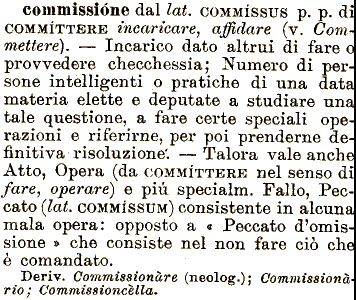 commissióne dal lat. COMMÍSSUS p. p. di
COMMÍTTERE incaricare, affidare (v. Com-
mettere). — Incarico dato altrui di fare o
provvedere checchessia; Numero di per-
sone intelligenti o pratiche di una data
materia elette e deputate a studiare una
tale questione, a fare certe speciali ope-
razioni e riferirne, per poi prenderne de-
finitiva risoluzione. — Talora vale anche
Atto, Opera (da COMMÍTTERE nel senso di
fare, operare) e piú specialm. Fallo, Pec-
cato (lat. COMMÍSSUM) consistente in alcuna
mala opera: opposto a « Peccato d'omis-
sione » che consiste nel non fare ciò che
è comandato.
Deriv. Commissionàre (neolog.); Commissionà-
rio; Commissioncèlla.